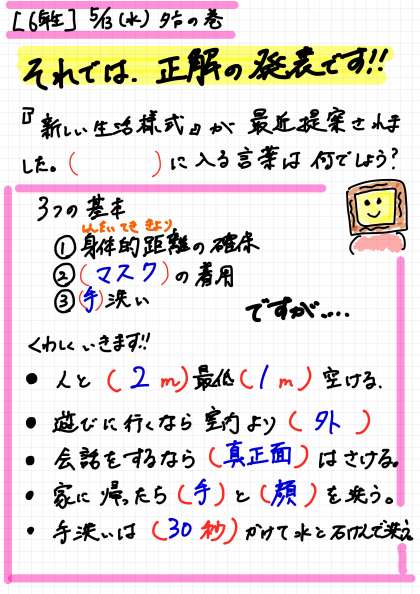 [6年生] 5/13(水) 夕方の巻
それでは、正解の発表です!!
『新しい生活様式』が 最近提案されま
した。(　　　)に入る言葉は何でしょう?
3つの基本
しんたいてき きょり
①身体的距離の確保
②(マスク)の着用
③(手)洗い
ですが....
くわしくいきます!!
● 人と(2m)最低(1m)空ける。
● 遊びに行くなら室内より(外)
● 会話をするなら(真正面)はさける。
● 家に帰ったら(手)と(顔)を洗う。
● 手洗いは(30秒)かけて水と石けんで洗う